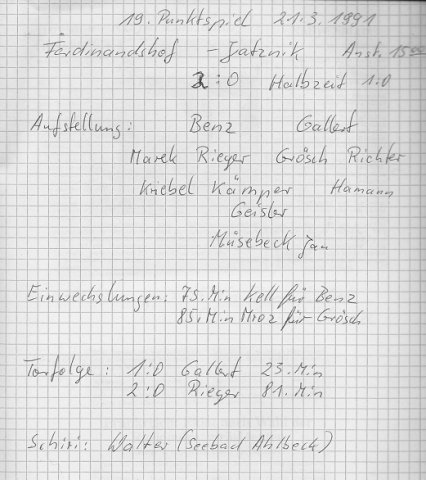 19. Punktspiel 21.3.1991
Ferdinandshof - Jatznik Anst. 15⁰⁰
2:0 Halbzeit 1:0
Aufstellung: Benz Gallert
Marek Rieger Grösch Richter
Kriebel Kämper Hamann
Geisler
Müsebeck Jan
Einwechslungen: 75. Min Kell für Benz
85. Min Mroz für Grösch
Torfolge: 1:0 Gallert 23. Min
2:0 Rieger 81. Min
Schiri: Walter (Seebad Ahlbeck)